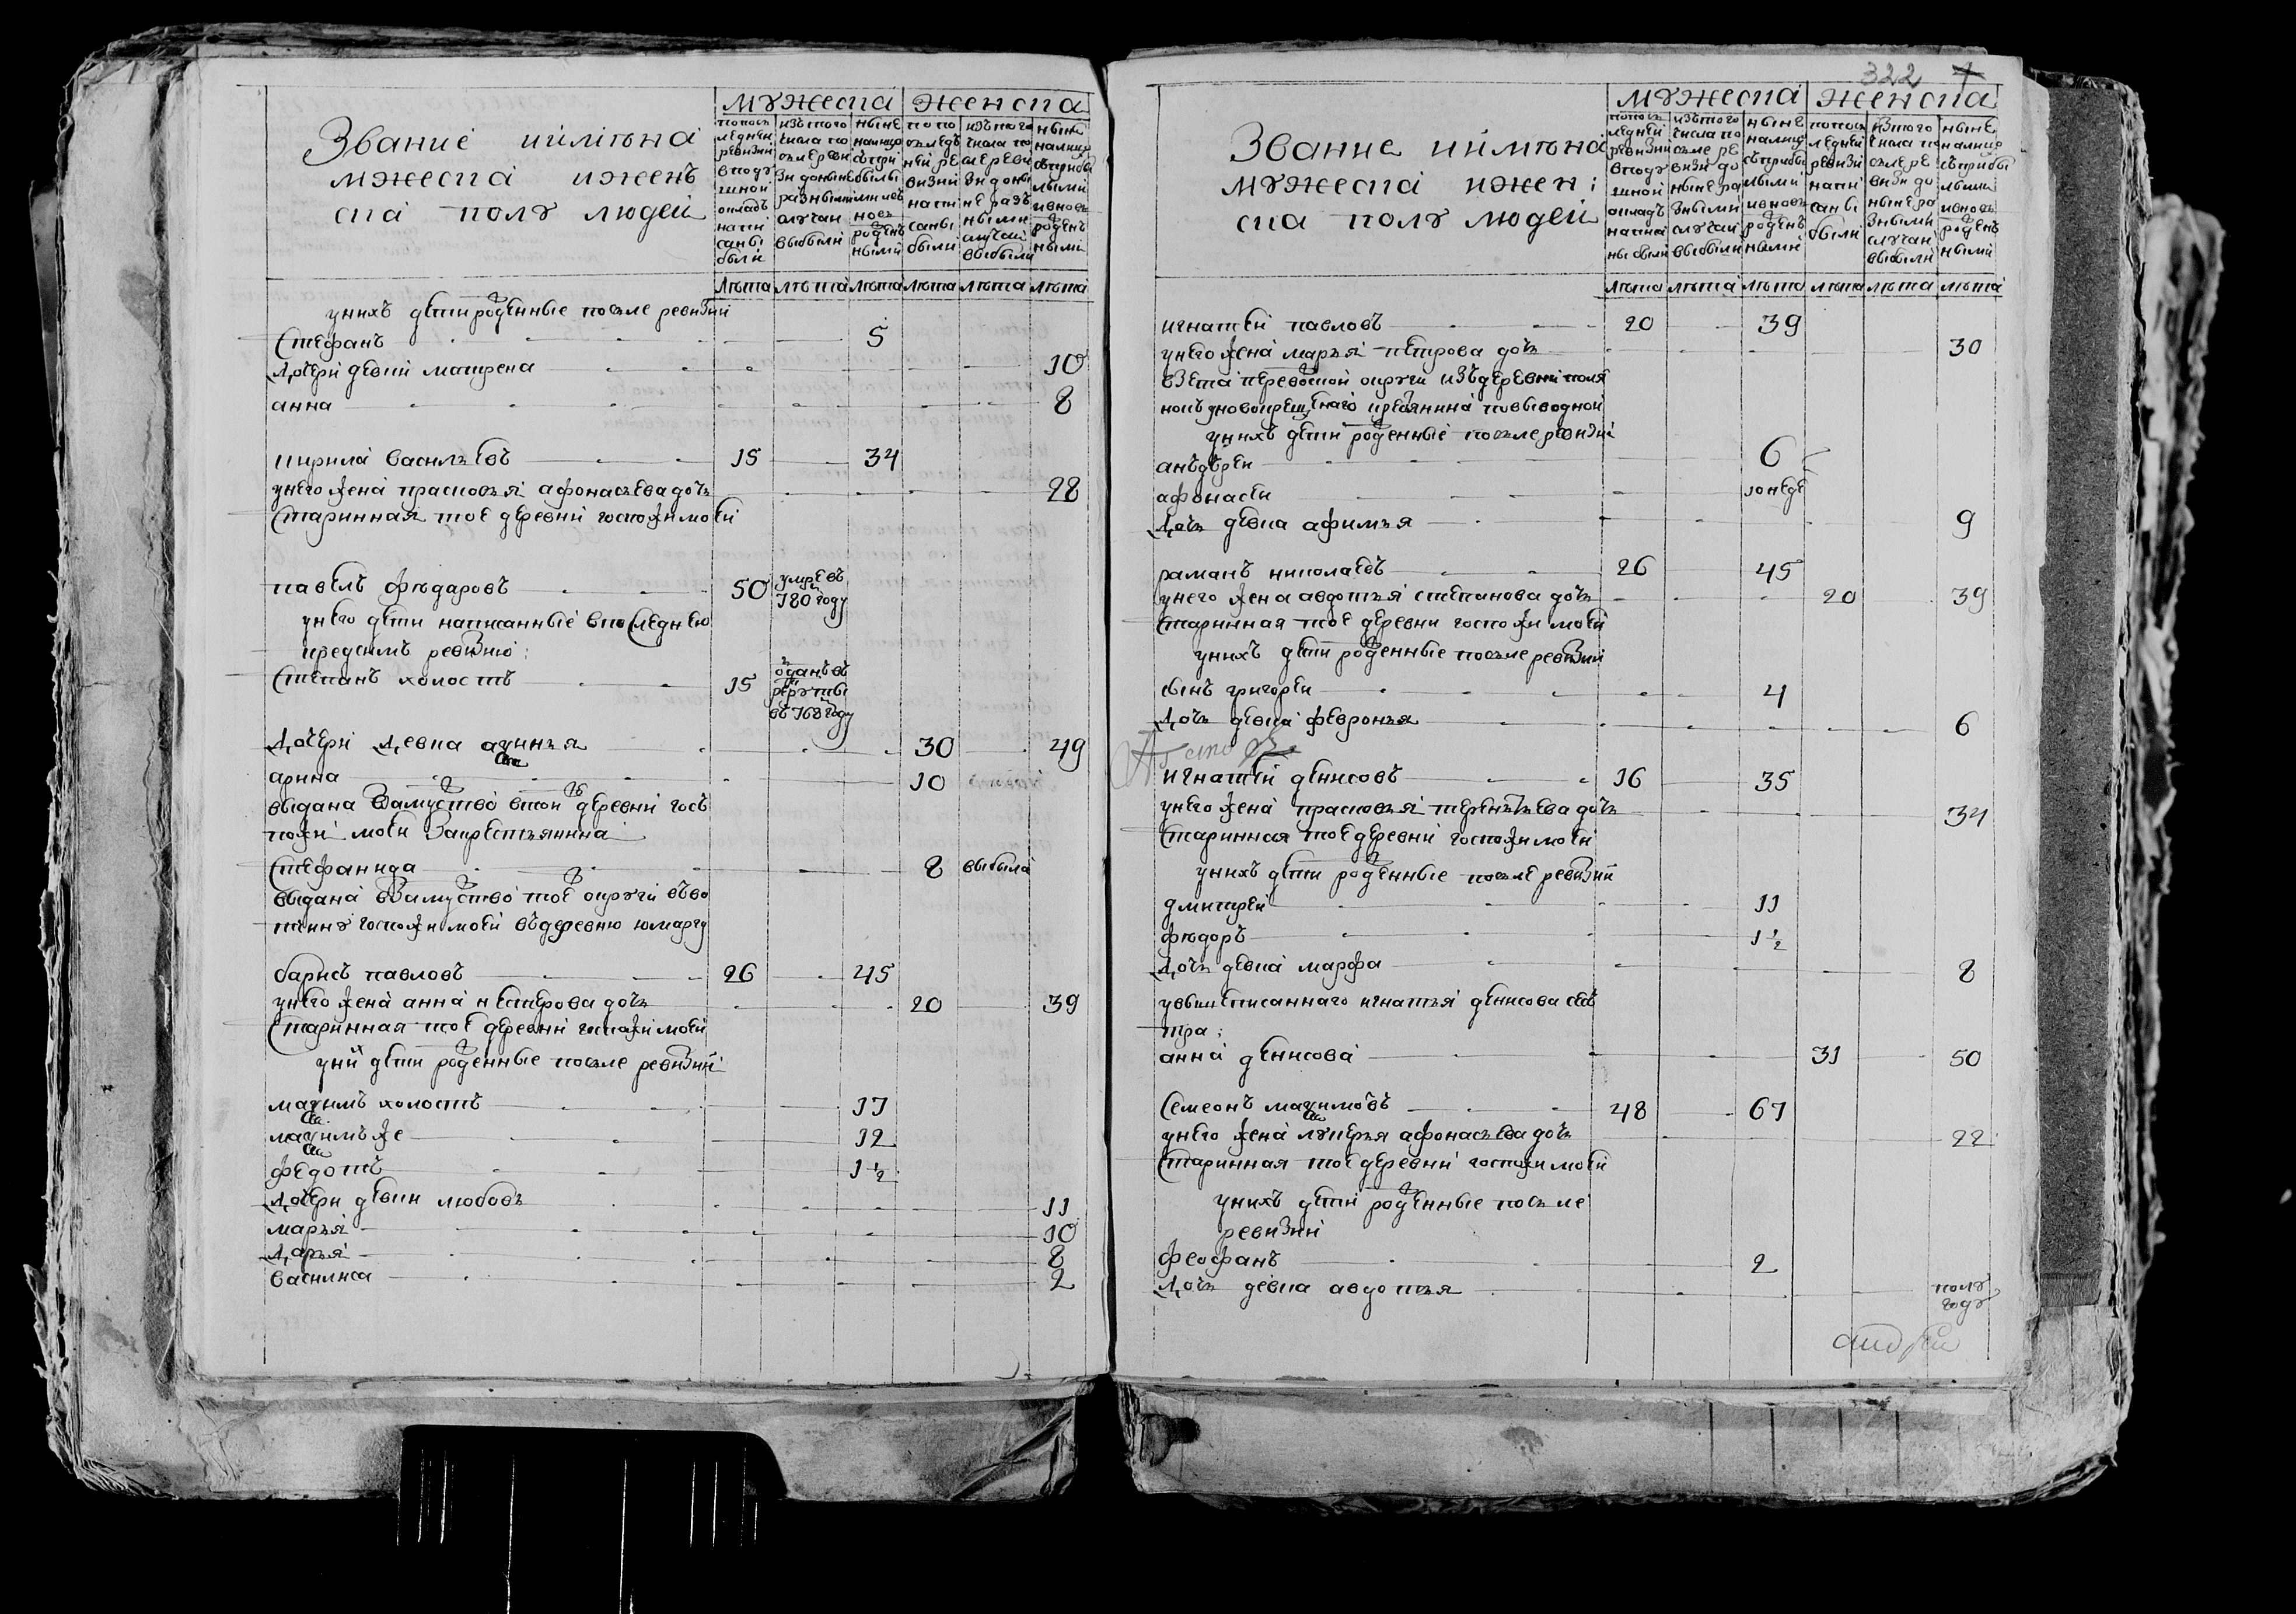 Звание иимѣна
мжеска иженъ
ска полу людей
мужеска
женска
попос
ледней
ревизии
вподу
шной
окладъ
напи
саны
были
изътого
числа по
сълеревизи доныне
разными
случаи
выбыли
ныне
налицо
съприбылыми
ивновь
роденъ
ными
по по
следъ
ней ре
визии
напи
саны
были
изътого
числа по
слереви
зи доны
не разъ
ными
случаи
выбыли
ныне
налицо
съприбы
лыми
ивновь
роденъ
ными
лѣта лѣта лѣта лѣта лѣта лѣта
унихъ дети роденные посъле ревизии
Стефанъ 5
Дочери девки матрена 10
анна 8
кирила васильевъ 15 34
унего жена прасковья афонасьева дочь 28
Старинная тое деревни госпожи моеи
павелъ фѣдаровъ 50 умре въ 780 году
унего дети написанные впоследнею
предсимъ ревизию:
Степанъ холостъ 15 оданъ въ рекруты въ 768 году
Дочери Девка акинья 30 49
арина 10
выдана взамуство втои деревни госъ
пожи моеи закрестьянина
Стефанида 8 выбыла
выдана взамуство тое округи въво
тчину госпожи моеи въдеревню юмаргу
барисъ павловъ 26 45
унего жена анна нестерова дочь 20 39
Старинная тое деревни госпажи моеи
унихъ дети роденные посъле ревизии
макимъ холостъ 17
макимъ же 12
федотъ 1 1/2
Дочери девки любовь 11
марья 10
Дарья 8
василиса 2
322 1
Звание иимѣна
мужеска ижен:
ска полу людей
мужеска
женска
попос
ледней
ревизии
вподу
шной
окладъ
написа
ны были
изътого
числа по
съле ре
визи до
ныне ра
зными
случаи
выбыли
ныне
налицо
съприбы
лыми
ивновь
роденъ
ными
попос
ледней
ревизи
напи
саны
были
изтого
числа по
съле ре
визи до
ныне ра
зными
случаи
выбыли
ныне
налицо
съприбы
лыми
ивновь
роденъ
ными
лѣта лѣта лѣта лѣта лѣта лѣта
игнатеи павловъ 20 39
унего жена марья петрова дочь 30
взета перевоской округи изъдеревни поля
нокъ уновокрещенаго крестянина повыводной
унихъ дети роденные посъле ревизи
анъдреи 6
афонасеи 10 неде
Дочь девка афимья 9
раманъ николаевъ 26 45
унего жена авдотья степанова дочь 20 39
Старинная тое деревни госпожи моеи
унихъ дети роденные посъле ревизии
сынъ григореи 4
Дочь девка февронья 6
игнатеи денисовъ 16 35
унего жена прасковья терентьева дочь 34
Старинная тое деревни госпожи моеи
унихъ дети роденные посъле ревизии
дмитреи 11
фѣдоръ 1 1/2
Дочь девка марфа 8
увышеписаннаго игнатья денисова сес
тра:
анна денисова 31 50
Семеонъ макимовъ 48 67
унего жена лукерья афонасьева дочь 22
Старинная тое деревни госпожи моеи
унихъ дети роденные посъле
ревизии
феофанъ 2
Дочь девка авдотья полу
году
андреи